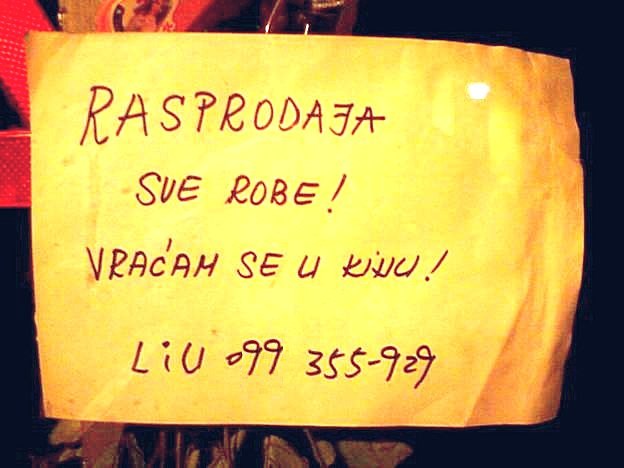 RASPRODAJA
SVE ROBE!
VRAĆAM SE U KINU!
LiU 099 355-929